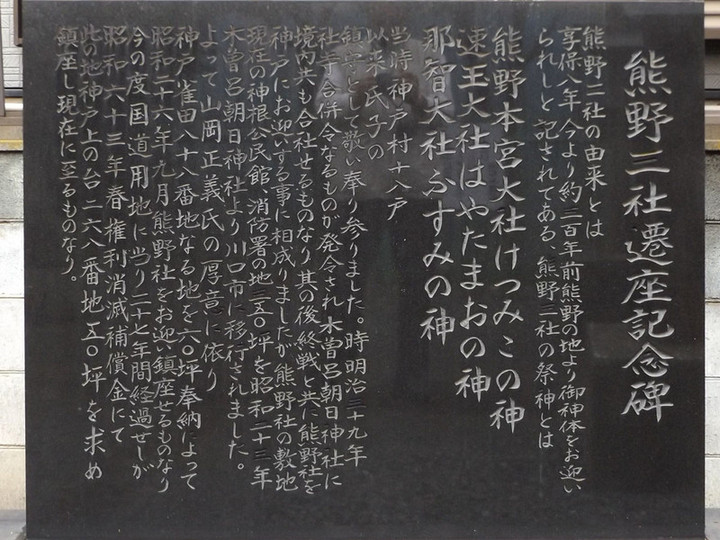 熊野三社遷座記念碑
熊野三社の由来とは
享保八年今より約三百年前熊野の地より御神体をお迎い
られしと記されてある、熊野三社の祭神とは
熊野本宮大社けつみこの神
速玉大社はやたまおの神
那智大社ふすみの神
当時神戸村十八戸
以来氏子の
鎮守として敬い奉り参りました。時明治三十九年
社寺合併令なるものが発令され木曽呂朝日神社に
境内共も合社せるものなり其の後終戦と共に熊野社を
神戸にお迎いする事に相成りましたが熊野社の敷地
現在の神根公民館、消防署の地三五〇坪を昭和二十三年
木曽呂朝日神社より川口市に移行されました。
よって山岡正義氏の厚意に依り
神戸雀田八十八番地なる地を六〇坪奉納によって
昭和二十六年九月熊野社をお迎い鎮座せるものなり
今の度国道用地に当り二十七年間経過せしが
昭和六十三年春権利消滅補償金にて
此の地神戸上の台二六八番地五〇坪を求め
鎮座し現在に至るものなり。